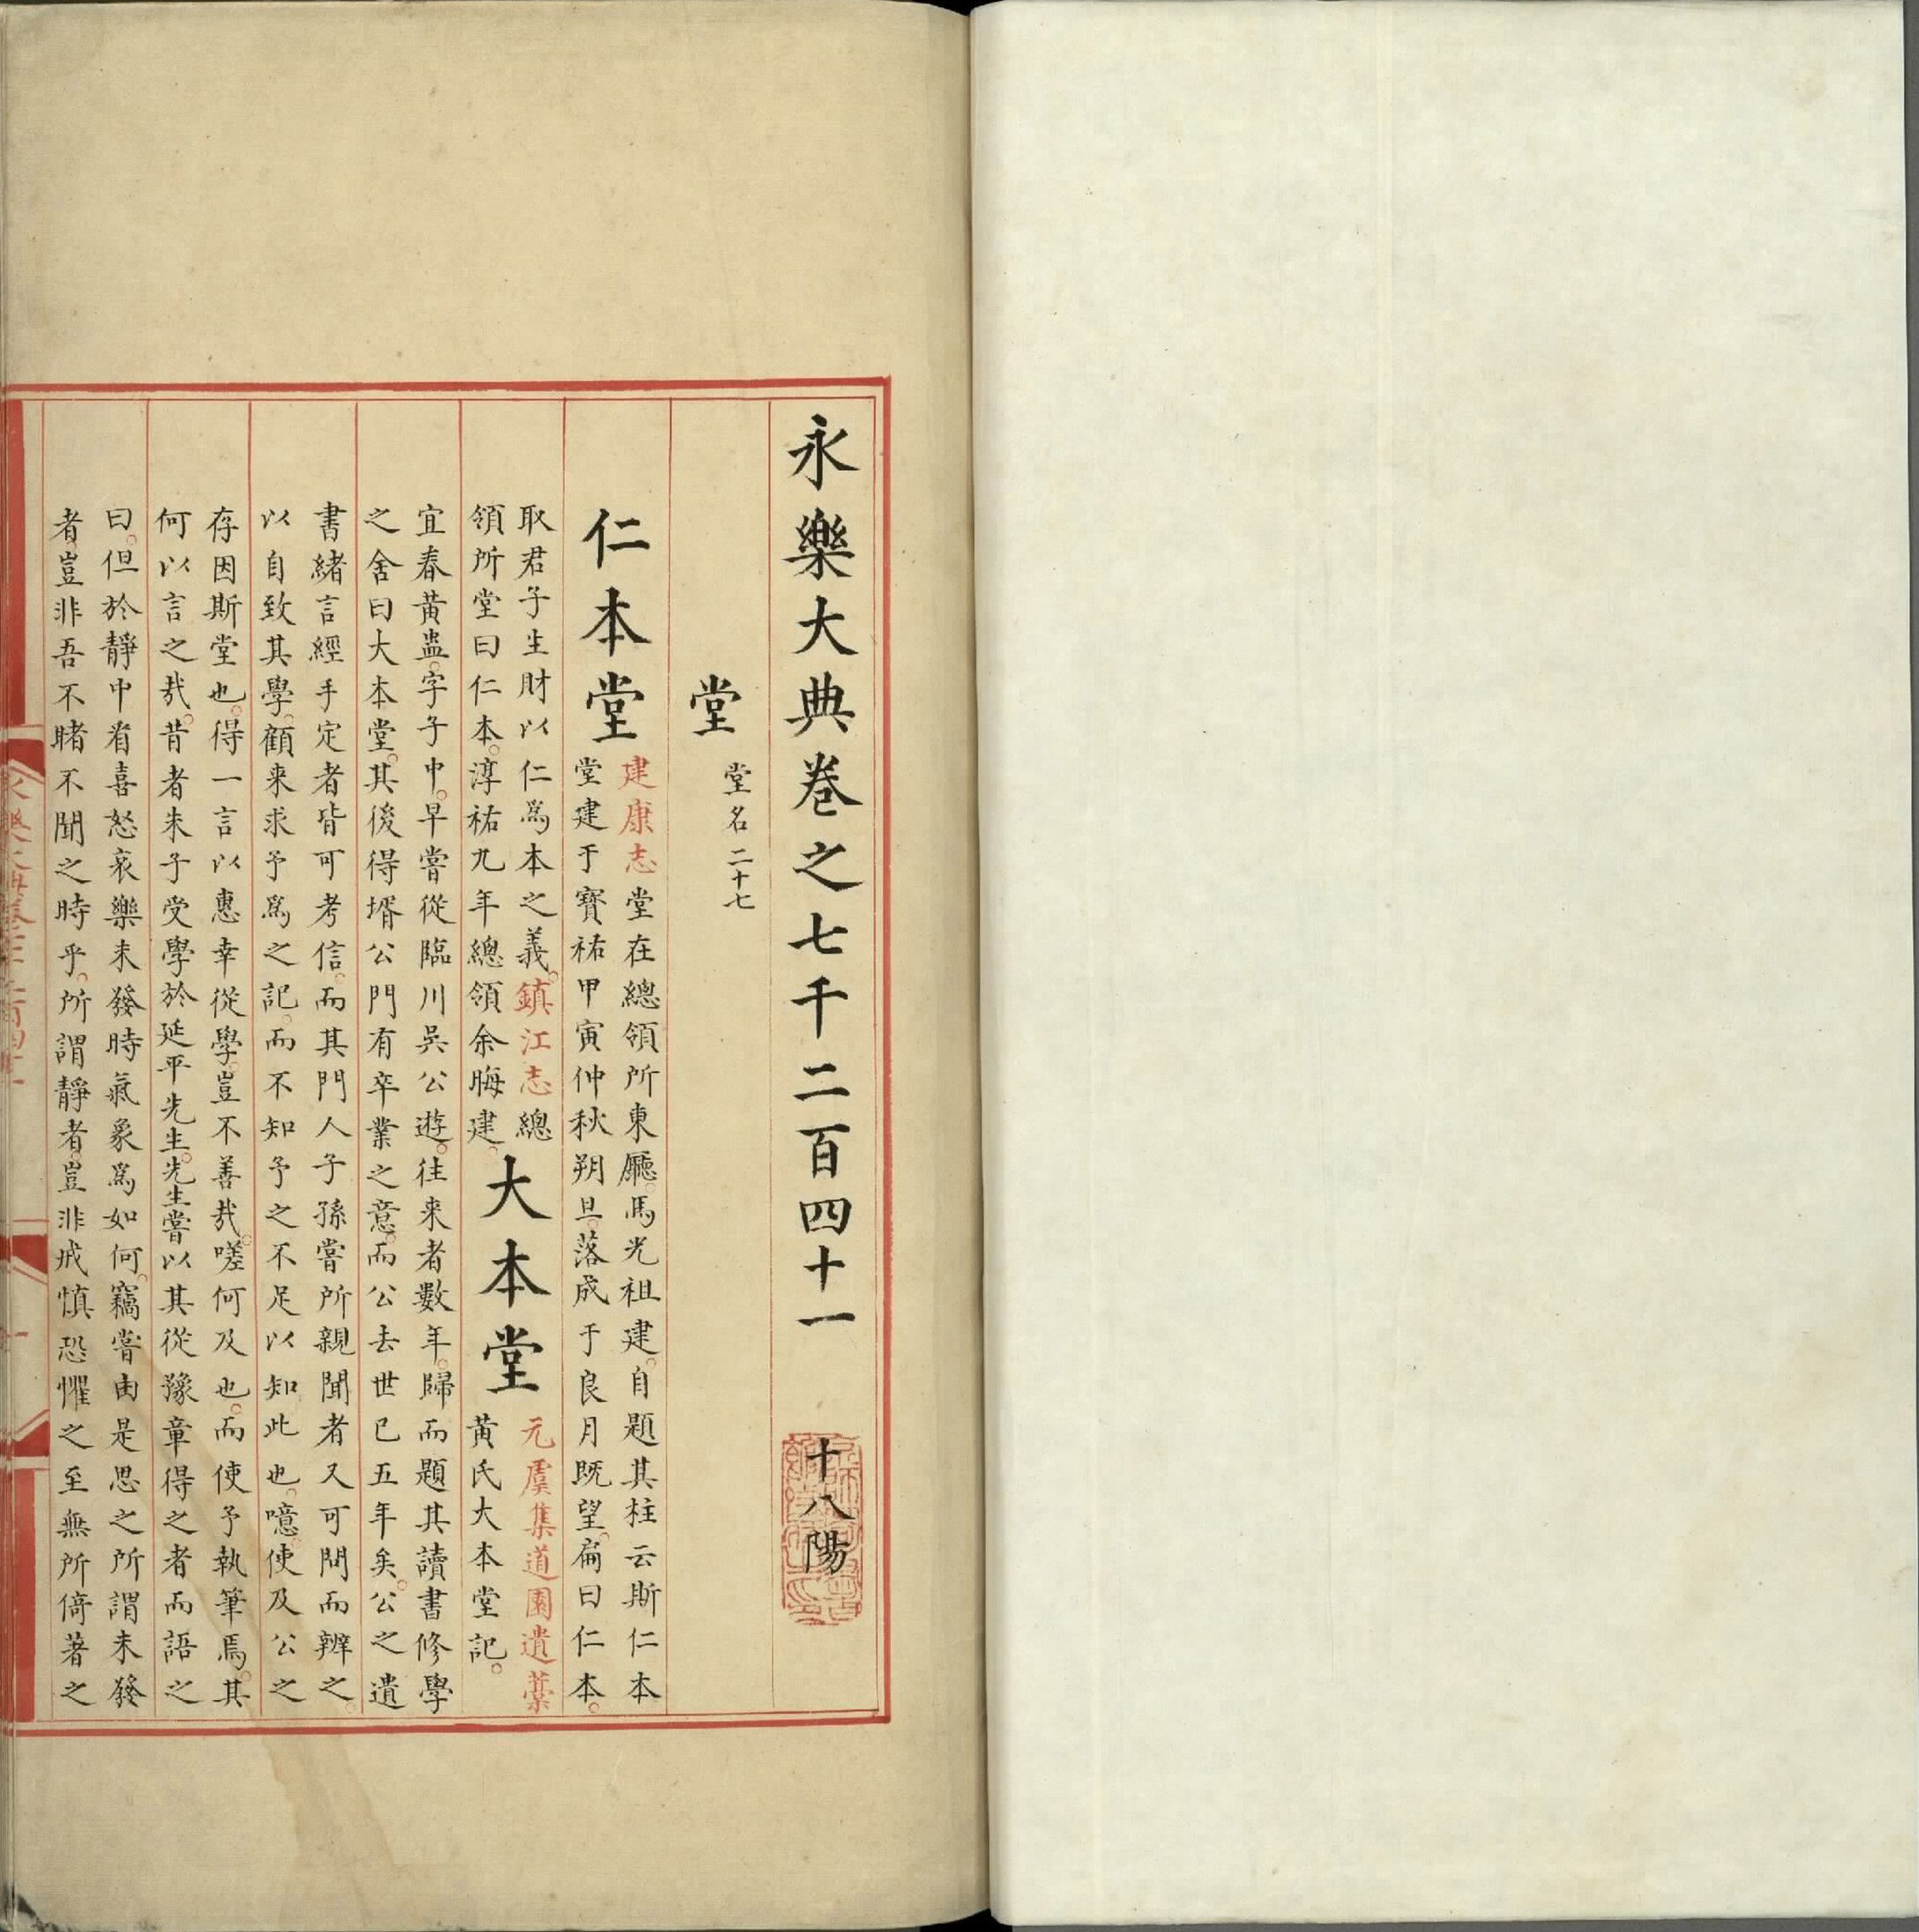 永樂大典卷之七千二百四十一 十八陽
堂 堂名二十七
仁本堂
建康志堂在總領所東廳。馬光祖建。自題其柱云斯仁本
堂建于寶祐甲寅仲秋朔旦。落成于良月既望。扁曰仁本。
取君子生財以仁爲本之義。鎮江志總
領所堂曰仁本。淳祐九年總領余晦建。
大本堂
元虞集道園遺藁
黃氏大本堂記。
宜春黃盅。字子中。早嘗從臨川吳公遊。往來者數年。歸而題其讀書修學
之舍曰大本堂。其後得壻公門有卒業之意。而公去世已五年矣。公之遺
書緒言經手定者皆可考信。而其門人子孫嘗所親聞者又可問而辨之。
以自致其學。顧來求予爲之記。而不知予之不足以知此也。噫。使及公之
存因斯堂也。得一言以惠幸從學。豈不善哉。嗟何及也。而使予執筆焉。其
何以言之哉。昔者朱子受學於延平先生。先生嘗以其從豫章得之者而語之
曰。但於靜中看喜怒哀樂未發時氣象爲如何。竊嘗由是思之所謂未發
者。豈非吾不睹不聞之時乎。所謂靜者。豈非戒慎恐懼之至無所倚著之